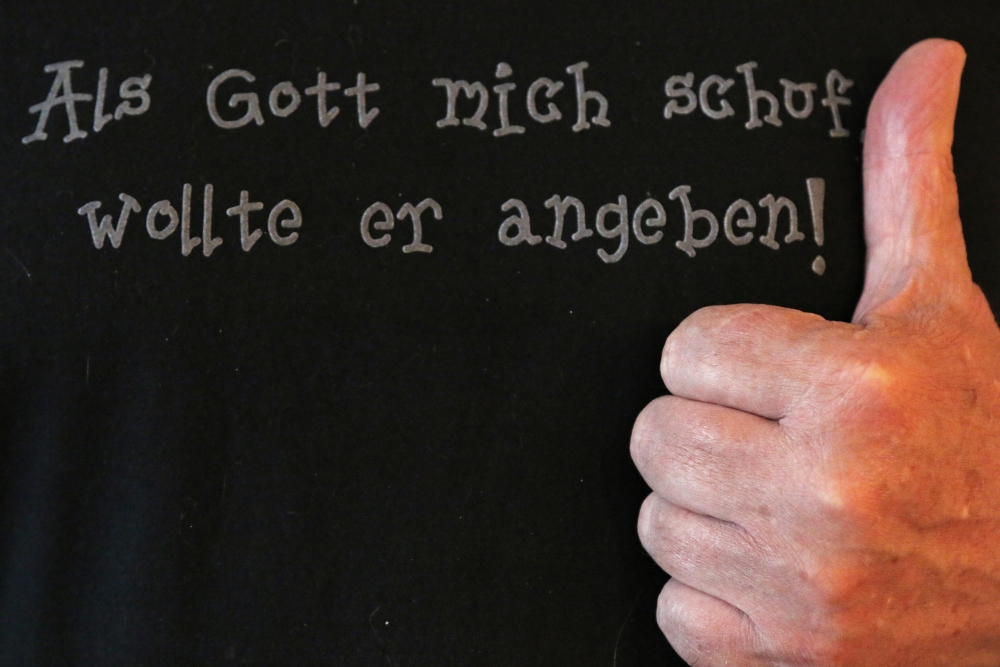 Als Gott mich schuf,
wollte er angeben!